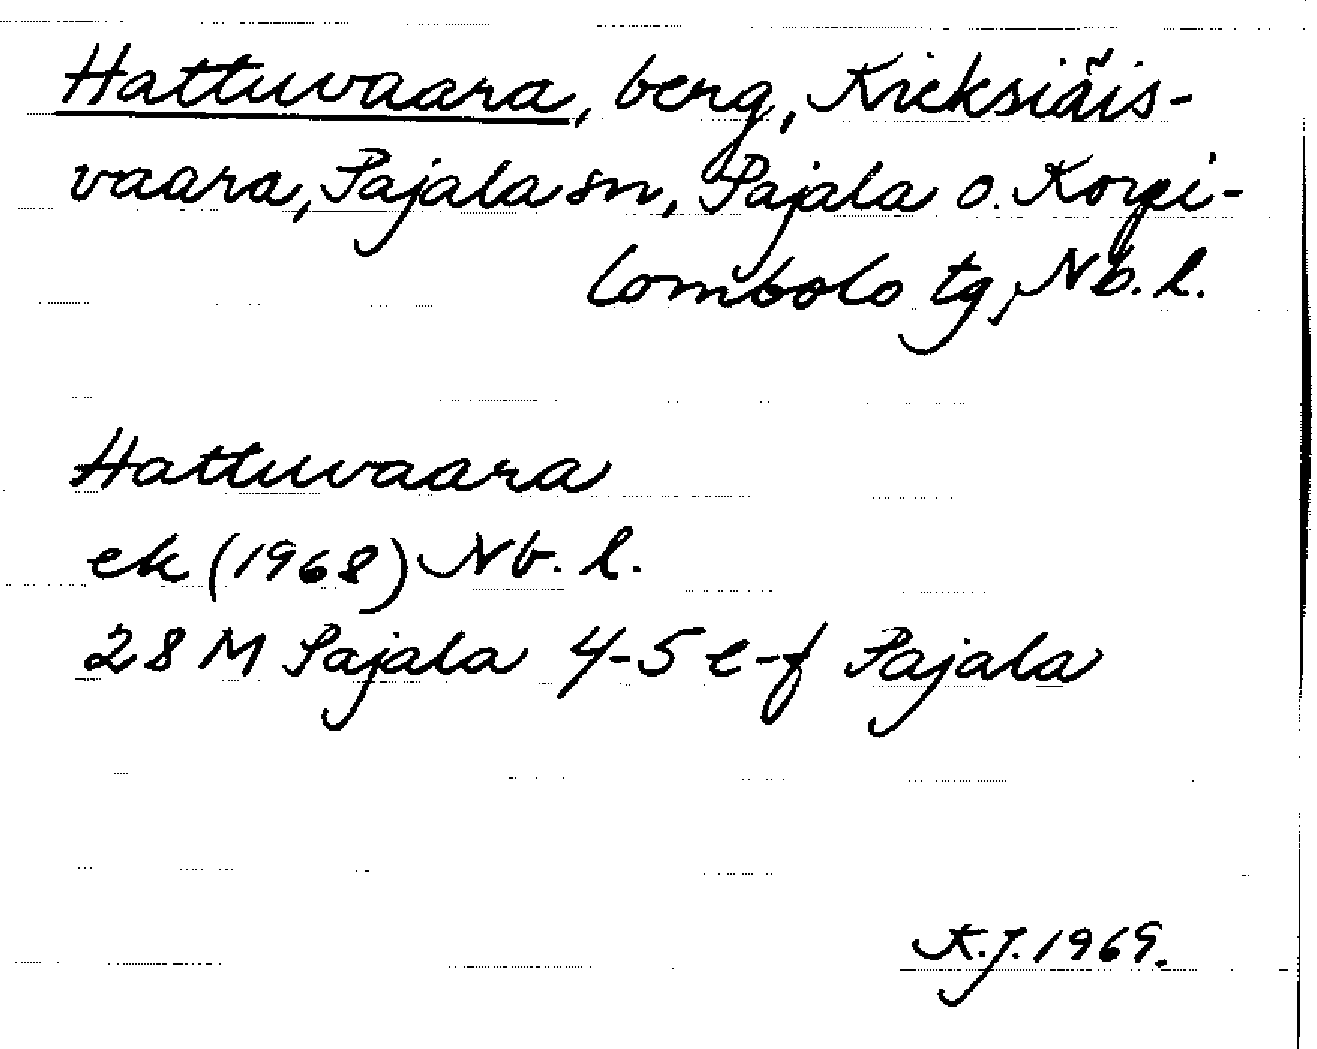 Hattuvaara, berg, Kieksiäis-
vaara, Pajala sn, Pajala o. Korpi-
lombolo tg, Nb. l.
Hattuvaara
ek (1968) Nb. l.
28 M Pajala 4-5 e-f Pajala
K.J. 1969.